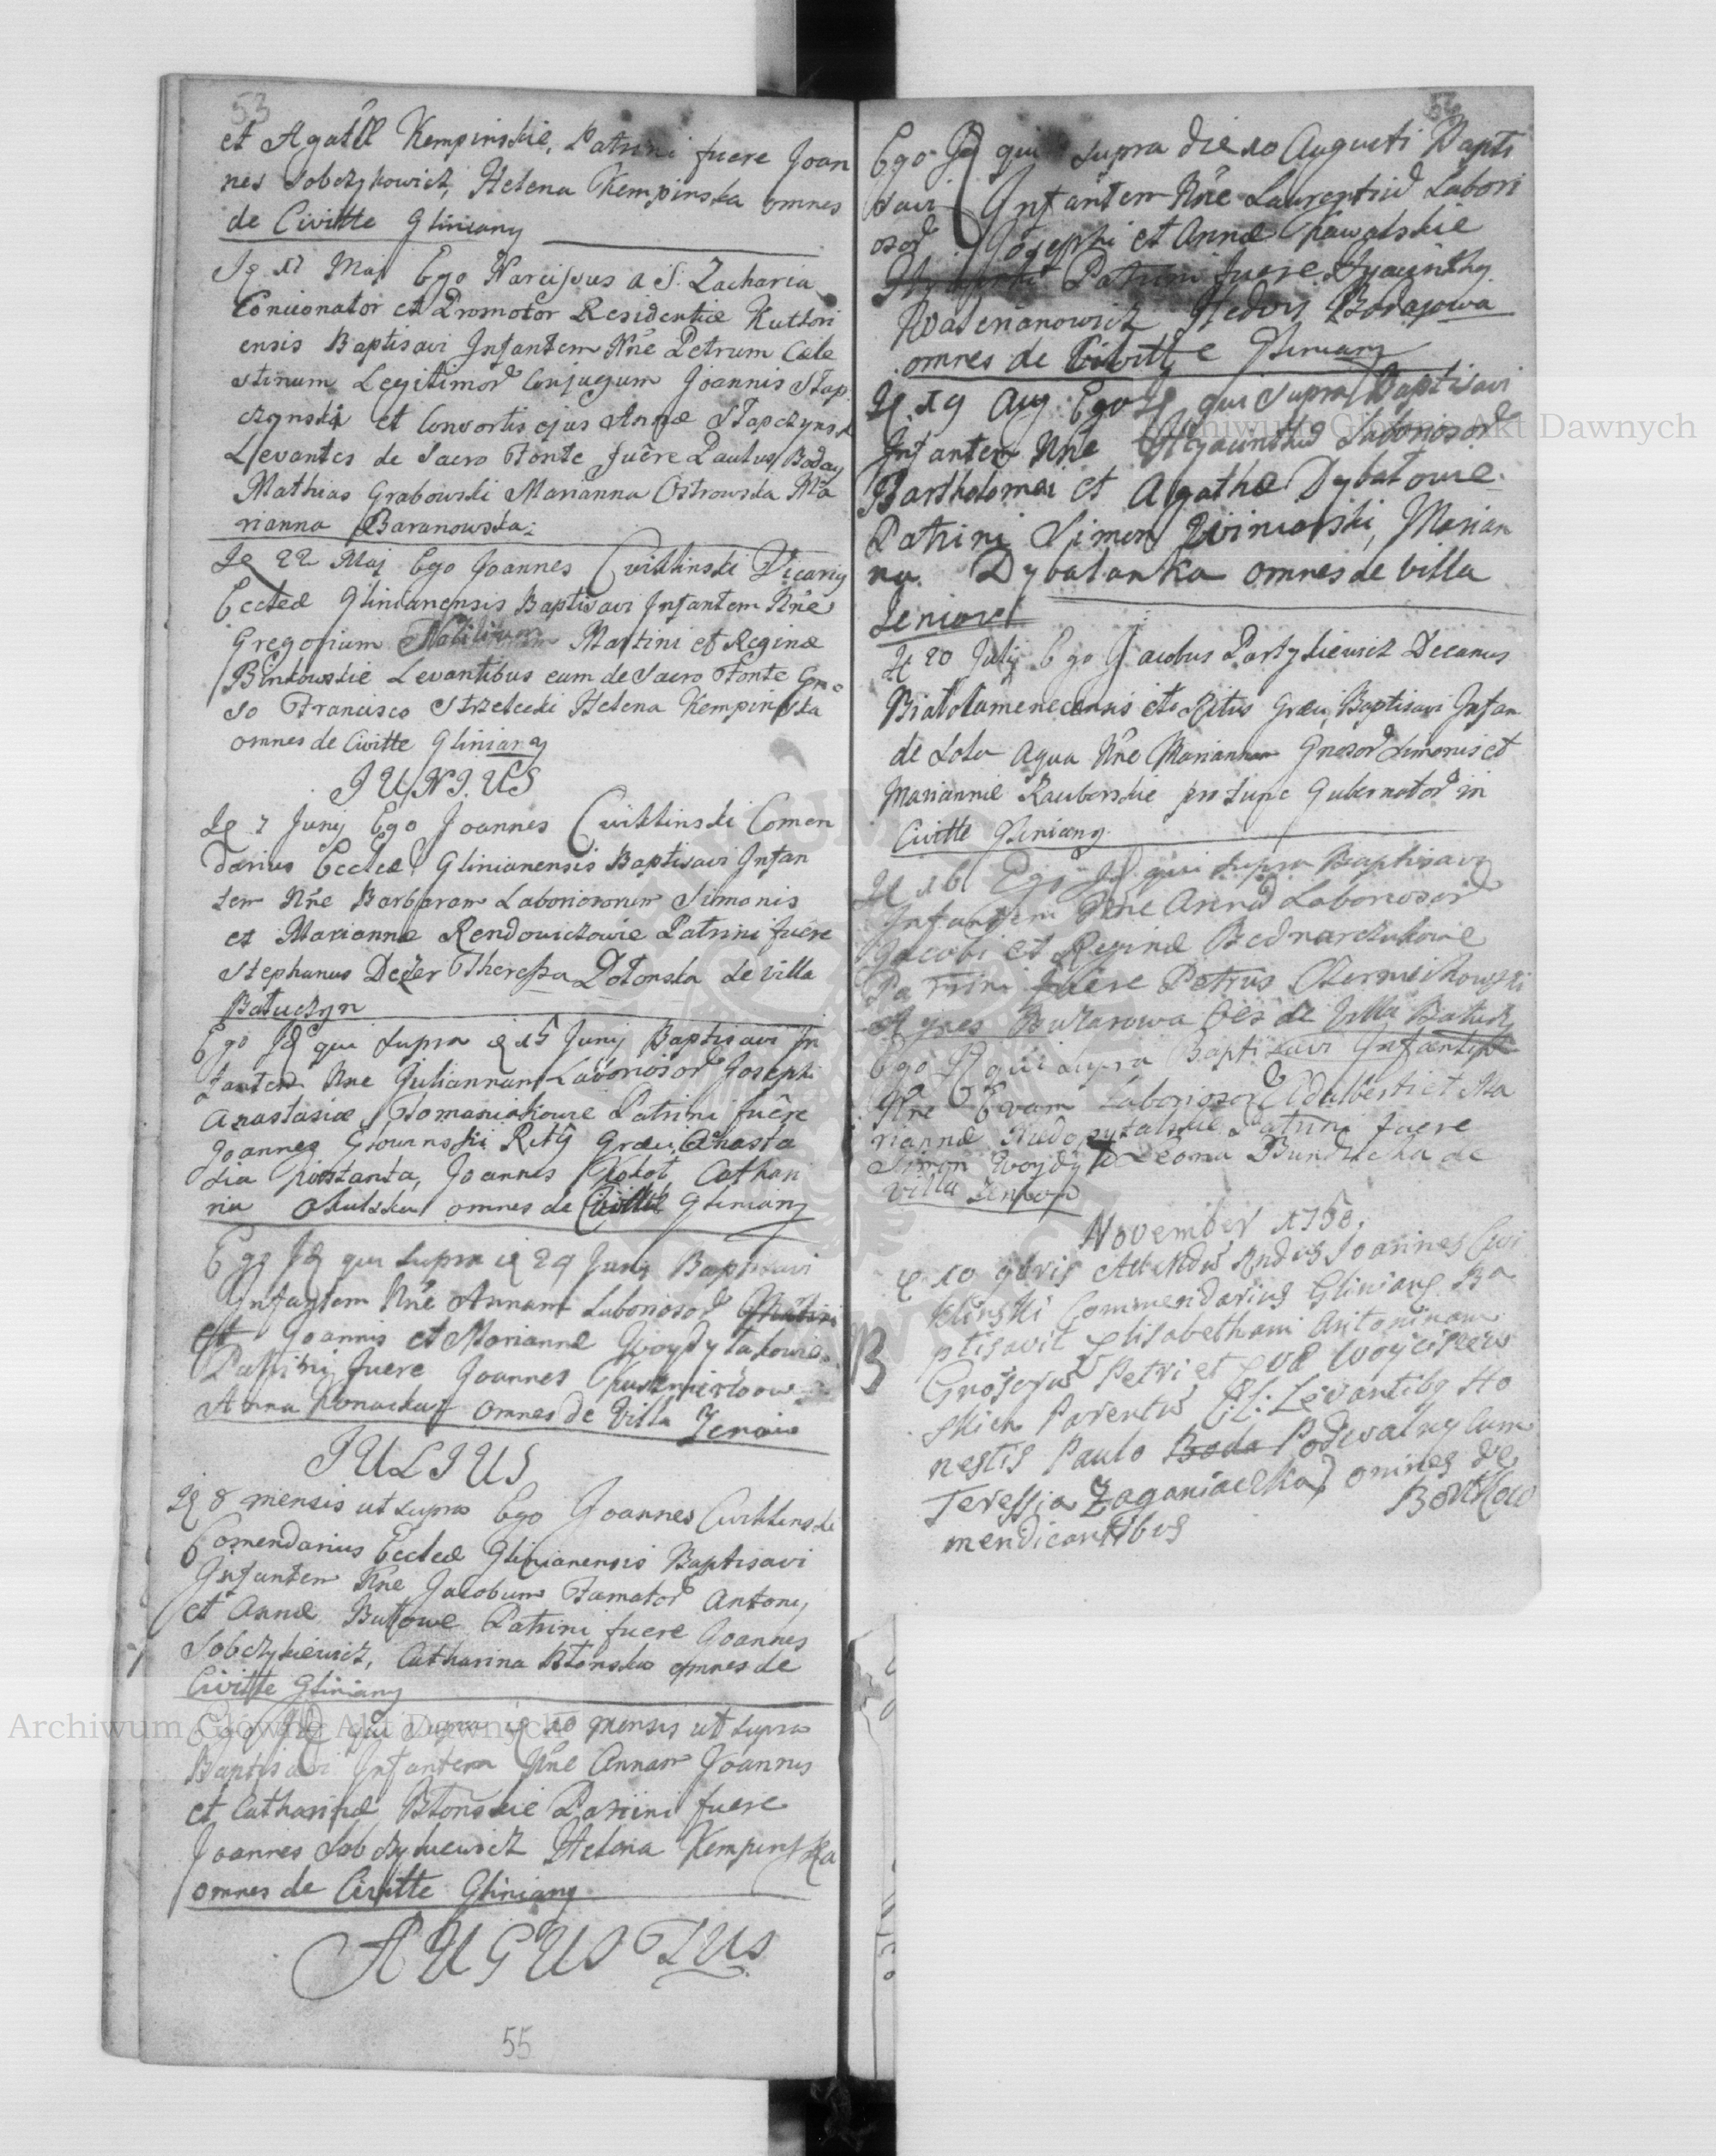 53
et Agathæ Kempinskie, Patrini fuere Joan
nes Sobczykowicz, Helena Kempinska omnes
de Civitte Gliniany
17 Maj Ego Narcissus a S. Zacharia
Concionator et Promotor Residentiæ Kuttori
ensis Baptisavi Infantem Nne Petrum Cæle
stinum Legitimor Conjugum Joannis Stap
czynski et Consortis ejus Annæ Stapczynsk
Levantes de Sacro Fonte fuêre PaulusBoday
Mathias Grabowski Marianna Ostrowska Ma
rianna Baranowska
22 Maj Ego Joannes Cwiklinski Vicariq
Eccleæ Glinianensis Baptisavi Infantem Nne
Gregorium Nobilium Martini et Reginæ
Binkowskie Levantibus eam de Sacro Fonte
so Francisco Strzelecki Helena Kempinska
omnes de Civitte Gliniany
JUNIUS
7 Juny Ego Joannes Cwiklinski Comen
darius Eccleæ Glinianensis Baptisavi Infan
tem Nne Barbaram Laboriosorum Simonis
et Mariannæ Rendowiczowie Patrini fuêre
Stephanus Decer Theressa Zlotonska de villa
Batuczyn
Ego Id qui supra 15 Juny Baptisavi In
fantem Nne Juliannam Laborioso Josephi
Anastasiæ Romaniakowie Patrini fuêre
Joannes Glowinski Rit Græci, Anasta
sia Joannes Kokot Cathari
na omnes de Civitte Gliniany
Ego Id qui supra 29 Juny Baptisavi
Infantem Nne Annam Laborioso
et Joannis et Mariannæ Woydylakowie
Patrini fuere Joannes
Anna omnes de Villa Zeniow
JULIUS
8 mensis ut supra Ego Joannes Cwiklinski
Comendarius Eccleæ Glinianensis Baptisavi
Infantem Nne Jacobum Famator Antony
et Annæ Butowe Patrini fuere Joannes
Sobczykiewicz, Catharina Blonska omnes de
Civitte Gliniany
Ego Id qui supra 10 mensis ut supra
Baptisavi Infantem Nne Annam Joannis
et Catharinæ Blonskie Patrini fuere
Joannes Sobczykiewicz Helena Kempinska
omnes de Civitte Gliniany
AUGUSTUS
55
Ego Id qui supra die 10 Augusti Bapti
savi Infantem Nne Laurentiu Labori
osor Josephi et Annæ Chawalskie
Patrini fuere Hyacinthq
Walerianowicz Hedvis Bodajowa
omnes de Civitte Gliniany
19 Aug Ego Id qui supra Baptisavi
Infantem Nne Hyacinthu Laboriosor
Bartholomæi et Agathæ Dybalowie
Patrini Simon Winiarski, Marian
na Dybalanka omnes de villa
Zeniow
20 July Ego Jacobus Partykiewicz Decanus
Bialokamenecensis Ritus Græci, Baptisavi Infan
de Sola aqua Nne Mariannam Gnosor Simonis et
Mariannæ Rauberskie pro tunc Gubernator in
Civitte Gliniany
16 Ego Id qui supra Baptisavi
Infantem Nne Anna Laboriosor
Jacobi et Reginæ Bednarczukowe
Patrini fuere Petrus
Agnes Burasowa de Villa Batucz
Ego Id qui supra Baptisavi Infantem
Nne Evam Laborioso Adalberti et Ma
riannæ Patrini fuere
Simon Woydyla Leona Bunducha de
villa Zeniow
November 1758.
10 9bris Adm Rndus Joannes Cwi
klinski Commendarius Gliniany Ba
ptisavit Elisabetham Antoninam
Grosorum Petri et Evæ Woyciszew
skich Parentu LL: Levantibq Ho
nestis Paulo Boda Podwalny cum
Teressia Zaganiaczka omnes de
mendicantibus Bortkow
B
Archiwum Główne Akt Dawnych
Archiwum Główne Akt Dawnych